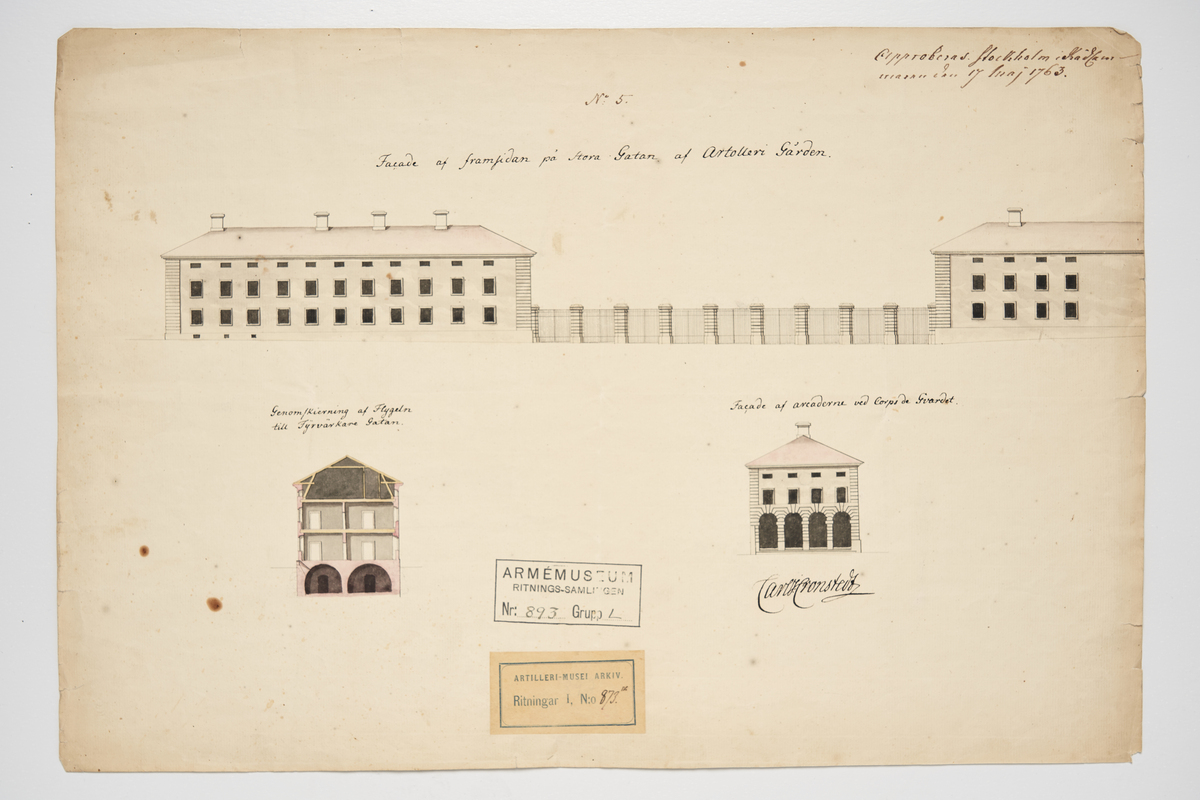 Approberas. Stockholm i Rådkam-
maren den 17 Maj 1763.
No 5.
Façade af framsidan på stora Gatan af Artolleri Gården.
Genomskierning af Flygeln
till Fyrvärkare Gatan.
Façade af arcaderne ved Corps de Gvardet.
Carl Cronstedt
ARMÉMUSEUM
RITNINGS-SAMLINGEN
Nr: 893 Grupp L
ARTILLERI-MUSEI ARKIV.
Ritningar I, N:o 873.